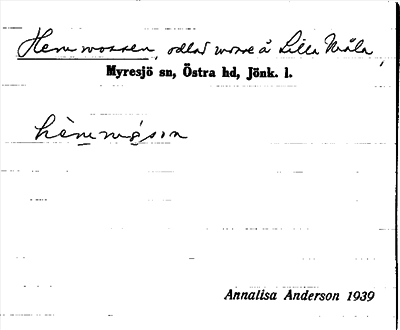 Hemmossen, odlad mosse å Lilla Måla,
Myresjö sn, Östra hd, Jönk. l.
hèmmósən
Annalisa Anderson 1939